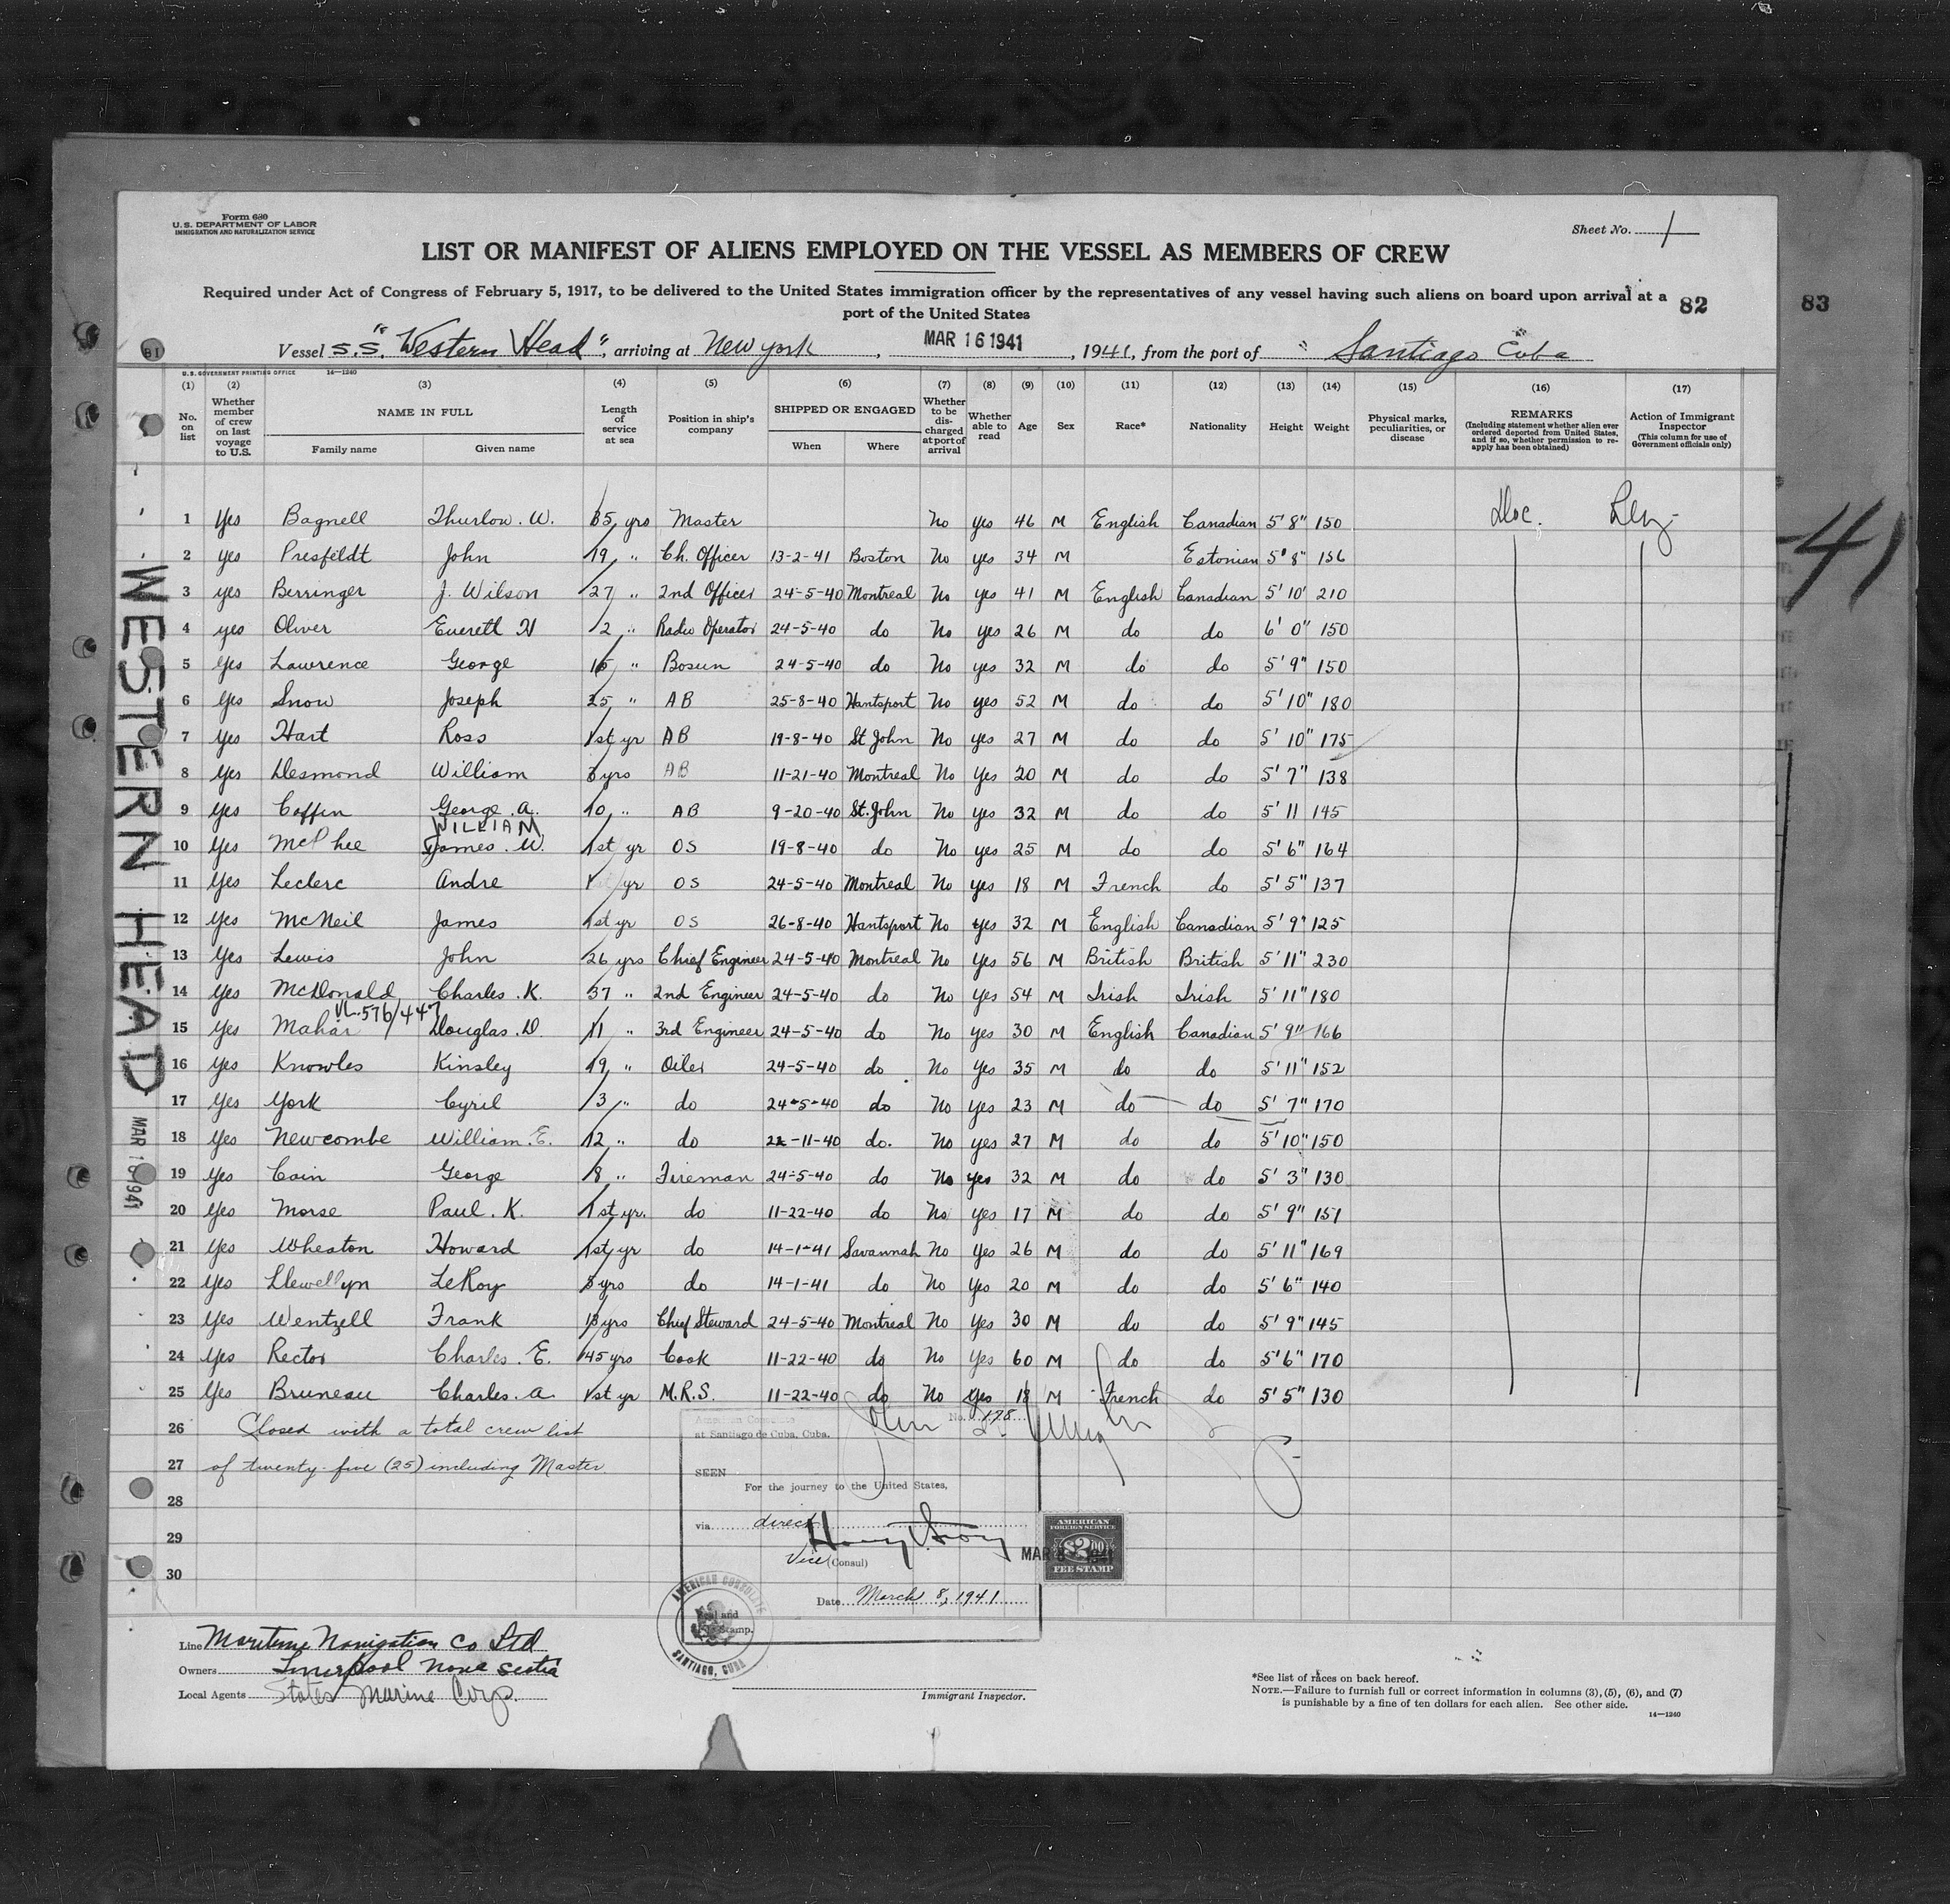 Form 680
U.S. DEPARTMENT OF LABOR
IMMIGRATION AND NATURALIZATION SERVICE
Sheet No. 1
LIST OR MANIFEST OF ALIENS EMPLOYED ON THE VESSEL AS MEMBERS OF CREW
Required under Act of Congress of February 5, 1917, to be delivered to the United States immigration officer by the representatives of any vessel having such aliens on board upon arrival at a
port of the United States
82
83
81
Vessel S.S. "Western Head", arriving at New York, MAR 16 1941, 1941, from the port of Santiago Cuba
U.S. GOVERNMENT PRINTING OFFICE 14—1240
(1) (2) (3) (4) (5) (6) (7) (8) (9) (10) (11) (12) (13) (14) (15) (16) (17)
No. on list
Whether member of crew on last voyage to U.S.
NAME IN FULL
Family name Given name
Length of service at sea
Position in ship's company
SHIPPED OR ENGAGED
When Where
Whether to be discharged at port of arrival
Whether able to read
Age
Sex
Race*
Nationality
Height
Weight
Physical marks, peculiarities, or disease
REMARKS
(Including statement whether alien ever ordered deported from United States, and if so, whether permission to reapply has been obtained)
Action of Immigrant Inspector
(This column for use of Government officials only)
1 Yes Bagnell Thurlow. W. 35 yrs Master No yes 46 M English Canadian 5' 8" 150
2 yes Presfeldt John 19 " Ch. Officer 13-2-41 Boston No yes 34 M Estonian 5' 8" 156
3 yes Berringer J. Wilson 27 " 2nd Officer 24-5-40 Montreal No yes 41 M English Canadian 5' 10' 210
4 yes Oliver Everett H 2 " Radio Operator 24-5-40 do No yes 26 M do do 6' 0" 150
5 Yes Lawrence George 15 " Bosun 24-5-40 do No yes 32 M do do 5' 9" 150
6 Yes Snow Joseph 25 " AB 25-8-40 Hantsport No yes 52 M do do 5' 10" 180
7 Yes Hart Ross 1st yr AB 19-8-40 St John No yes 27 M do do 5' 10" 175
8 Yes Desmond William 3 yrs AB 11-21-40 Montreal No Yes 20 M do do 5' 7" 138
9 Yes Coffin George. A. 10 " AB 9-20-40 St. John No yes 32 M do do 5' 11 145
WILLIAM
10 Yes McPhee James. W. 1st yr OS 19-8-40 do No yes 25 M do do 5' 6" 164
11 Yes Leclerc Andre 1st yr OS 24-5-40 Montreal No yes 18 M French do 5' 5" 137
12 Yes McNeil James 1st yr OS 26-8-40 Hantsport No yes 32 M English Canadian 5' 9" 125
13 Yes Lewis John 26 yrs Chief Engineer 24-5-40 Montreal No Yes 56 M British British 5' 11" 230
14 Yes McDonald Charles. K. 37 " 2nd Engineer 24-5-40 do No Yes 54 M Irish Irish 5' 11" 180
VL.576/447
15 Yes Mahar Douglas. D. 11 " 3rd Engineer 24-5-40 do No Yes 30 M English Canadian 5' 9" 166
16 Yes Knowles Kinsley 19 " Oiler 24-5-40 do No Yes 35 M do do 5' 11" 152
17 Yes York Cyril 3 " do 24-5-40 do No Yes 23 M do do 5' 7" 170
18 Yes Newcombe William. E. 12 " do 22-11-40 do. No yes 27 M do do 5' 10" 150
19 Yes Cain George 8 " Fireman 24-5-40 do No yes 32 M do do 5' 3" 130
20 Yes Morse Paul. K. 1st yr. do 11-22-40 do No yes 17 M do do 5' 9" 151
21 Yes Wheaton Howard 1st yr do 14-1-41 Savannah No Yes 26 M do do 5' 11" 169
22 Yes Llewellyn LeRoy 3 yrs do 14-1-41 do No Yes 20 M do do 5' 6" 140
23 Yes Wentzell Frank 13 yrs Chief Steward 24-5-40 Montreal No Yes 30 M do do 5' 9" 145
24 Yes Rector Charles. E. 45 yrs Cook 11-22-40 do No Yes 60 M do do 5' 6" 170
25 Yes Bruneau Charles. A. 1st yr M.R.S. 11-22-40 do No Yes 18 M French do 5' 5" 130
26 Closed with a total crew list
27 of twenty-five (25) including Master
28
29
30
WESTERN HEAD
MAR 16 1941
-41
at Santiago de Cuba, Cuba.
No. 178
SEEN
For the journey to the United States,
via direct
Vice (Consul)
Date March 8, 1941
Seal and
Stamp.
AMERICAN CONSULATE
SANTIAGO, CUBA
AMERICAN FOREIGN SERVICE
$2.00
FEE STAMP
MAR 8 1941
Line Maritime Navigation Co Ltd
Owners Liverpool Nova Scotia
Local Agents States Marine Corp.
Immigrant Inspector.
*See list of races on back hereof.
NOTE.—Failure to furnish full or correct information in columns (3), (5), (6), and (7)
is punishable by a fine of ten dollars for each alien. See other side.
14—1240